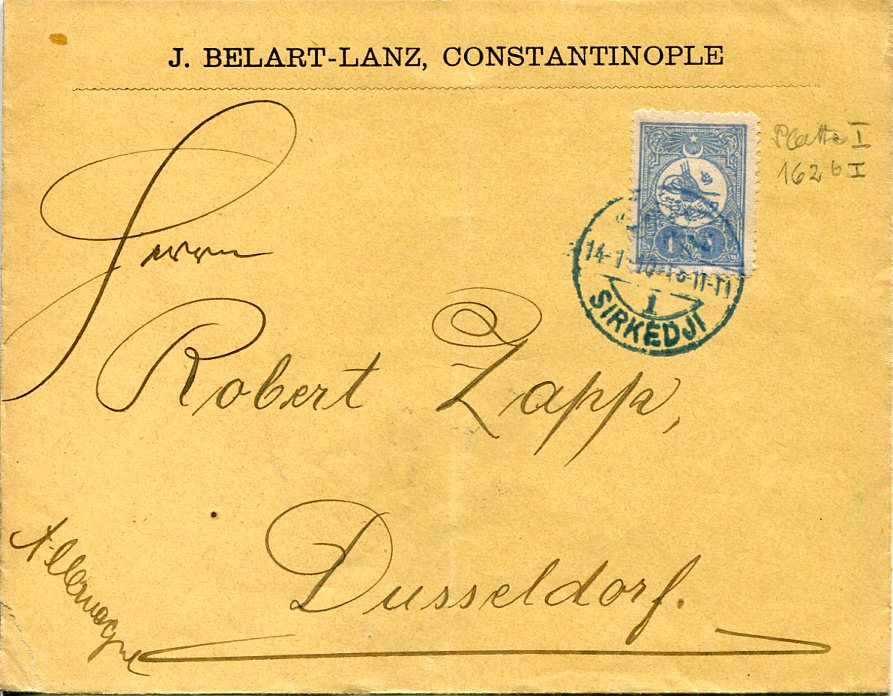 J. BELART-LANZ, CONSTANTINOPLE
Platte I
162 b I
SIRKEDJI
1
Herrn
Robert Zapp,
Dusseldorf.
Allemagne